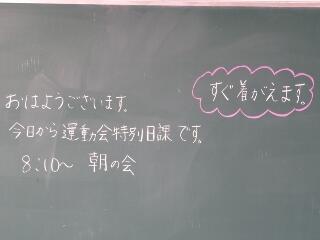 おはようございます。
今日から運動会特別日課です。
8:10〜 朝の会
すぐ着がえます。